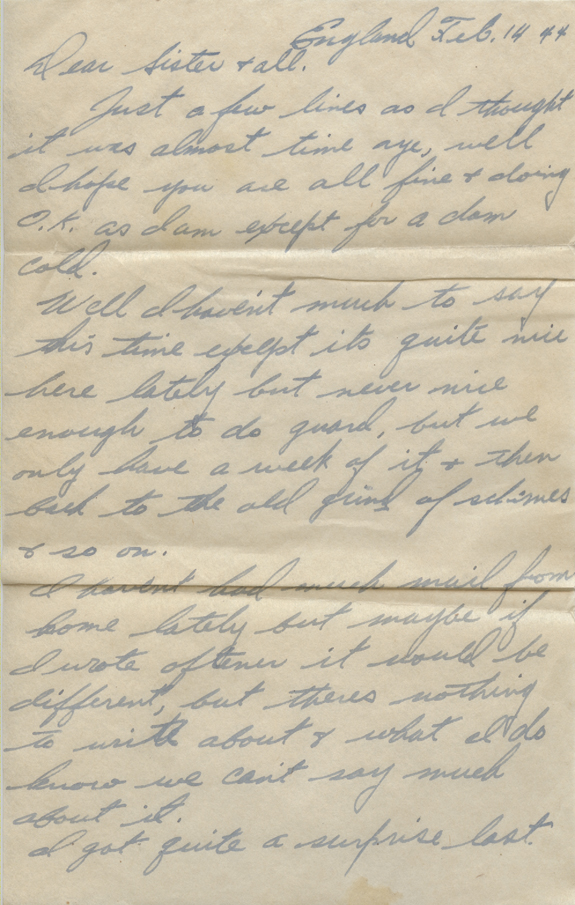 England Feb. 14 44
Dear Sister & all.
Just a few lines as I thought
it was almost time aye, well
I hope you are all fine & doing
O.K. as I am except for a dam
cold.
Well I haven't much to say
this time except its quite nice
here lately but never nice
enough to do guard, but we
only have a week of it & then
back to the old grind of schemes
& so on.
I haven't had much mail from
home lately but maybe if
I wrote oftener it would be
different, but theres nothing
to write about & what I do
know we can't say much
about it.
I got quite a surprise last